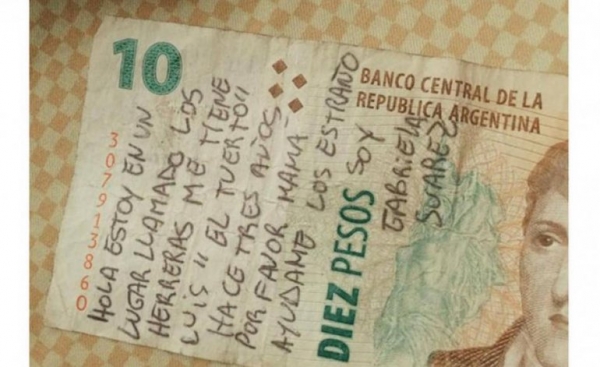 10
30791386O
HOLA ESTOY EN UN
LUGAR LLAMADO LOS
HERRERAS ME TIENE
LUIS "EL TUERTO"
HACE TRES AÑOS
POR FAVOR MAMÁ
AYUDAME LOS ESTRAÑO
SOY
GABRIELA
SUAREZ
DIEZ PESOS
BANCO CENTRAL DE LA
REPUBLICA ARGENTINA